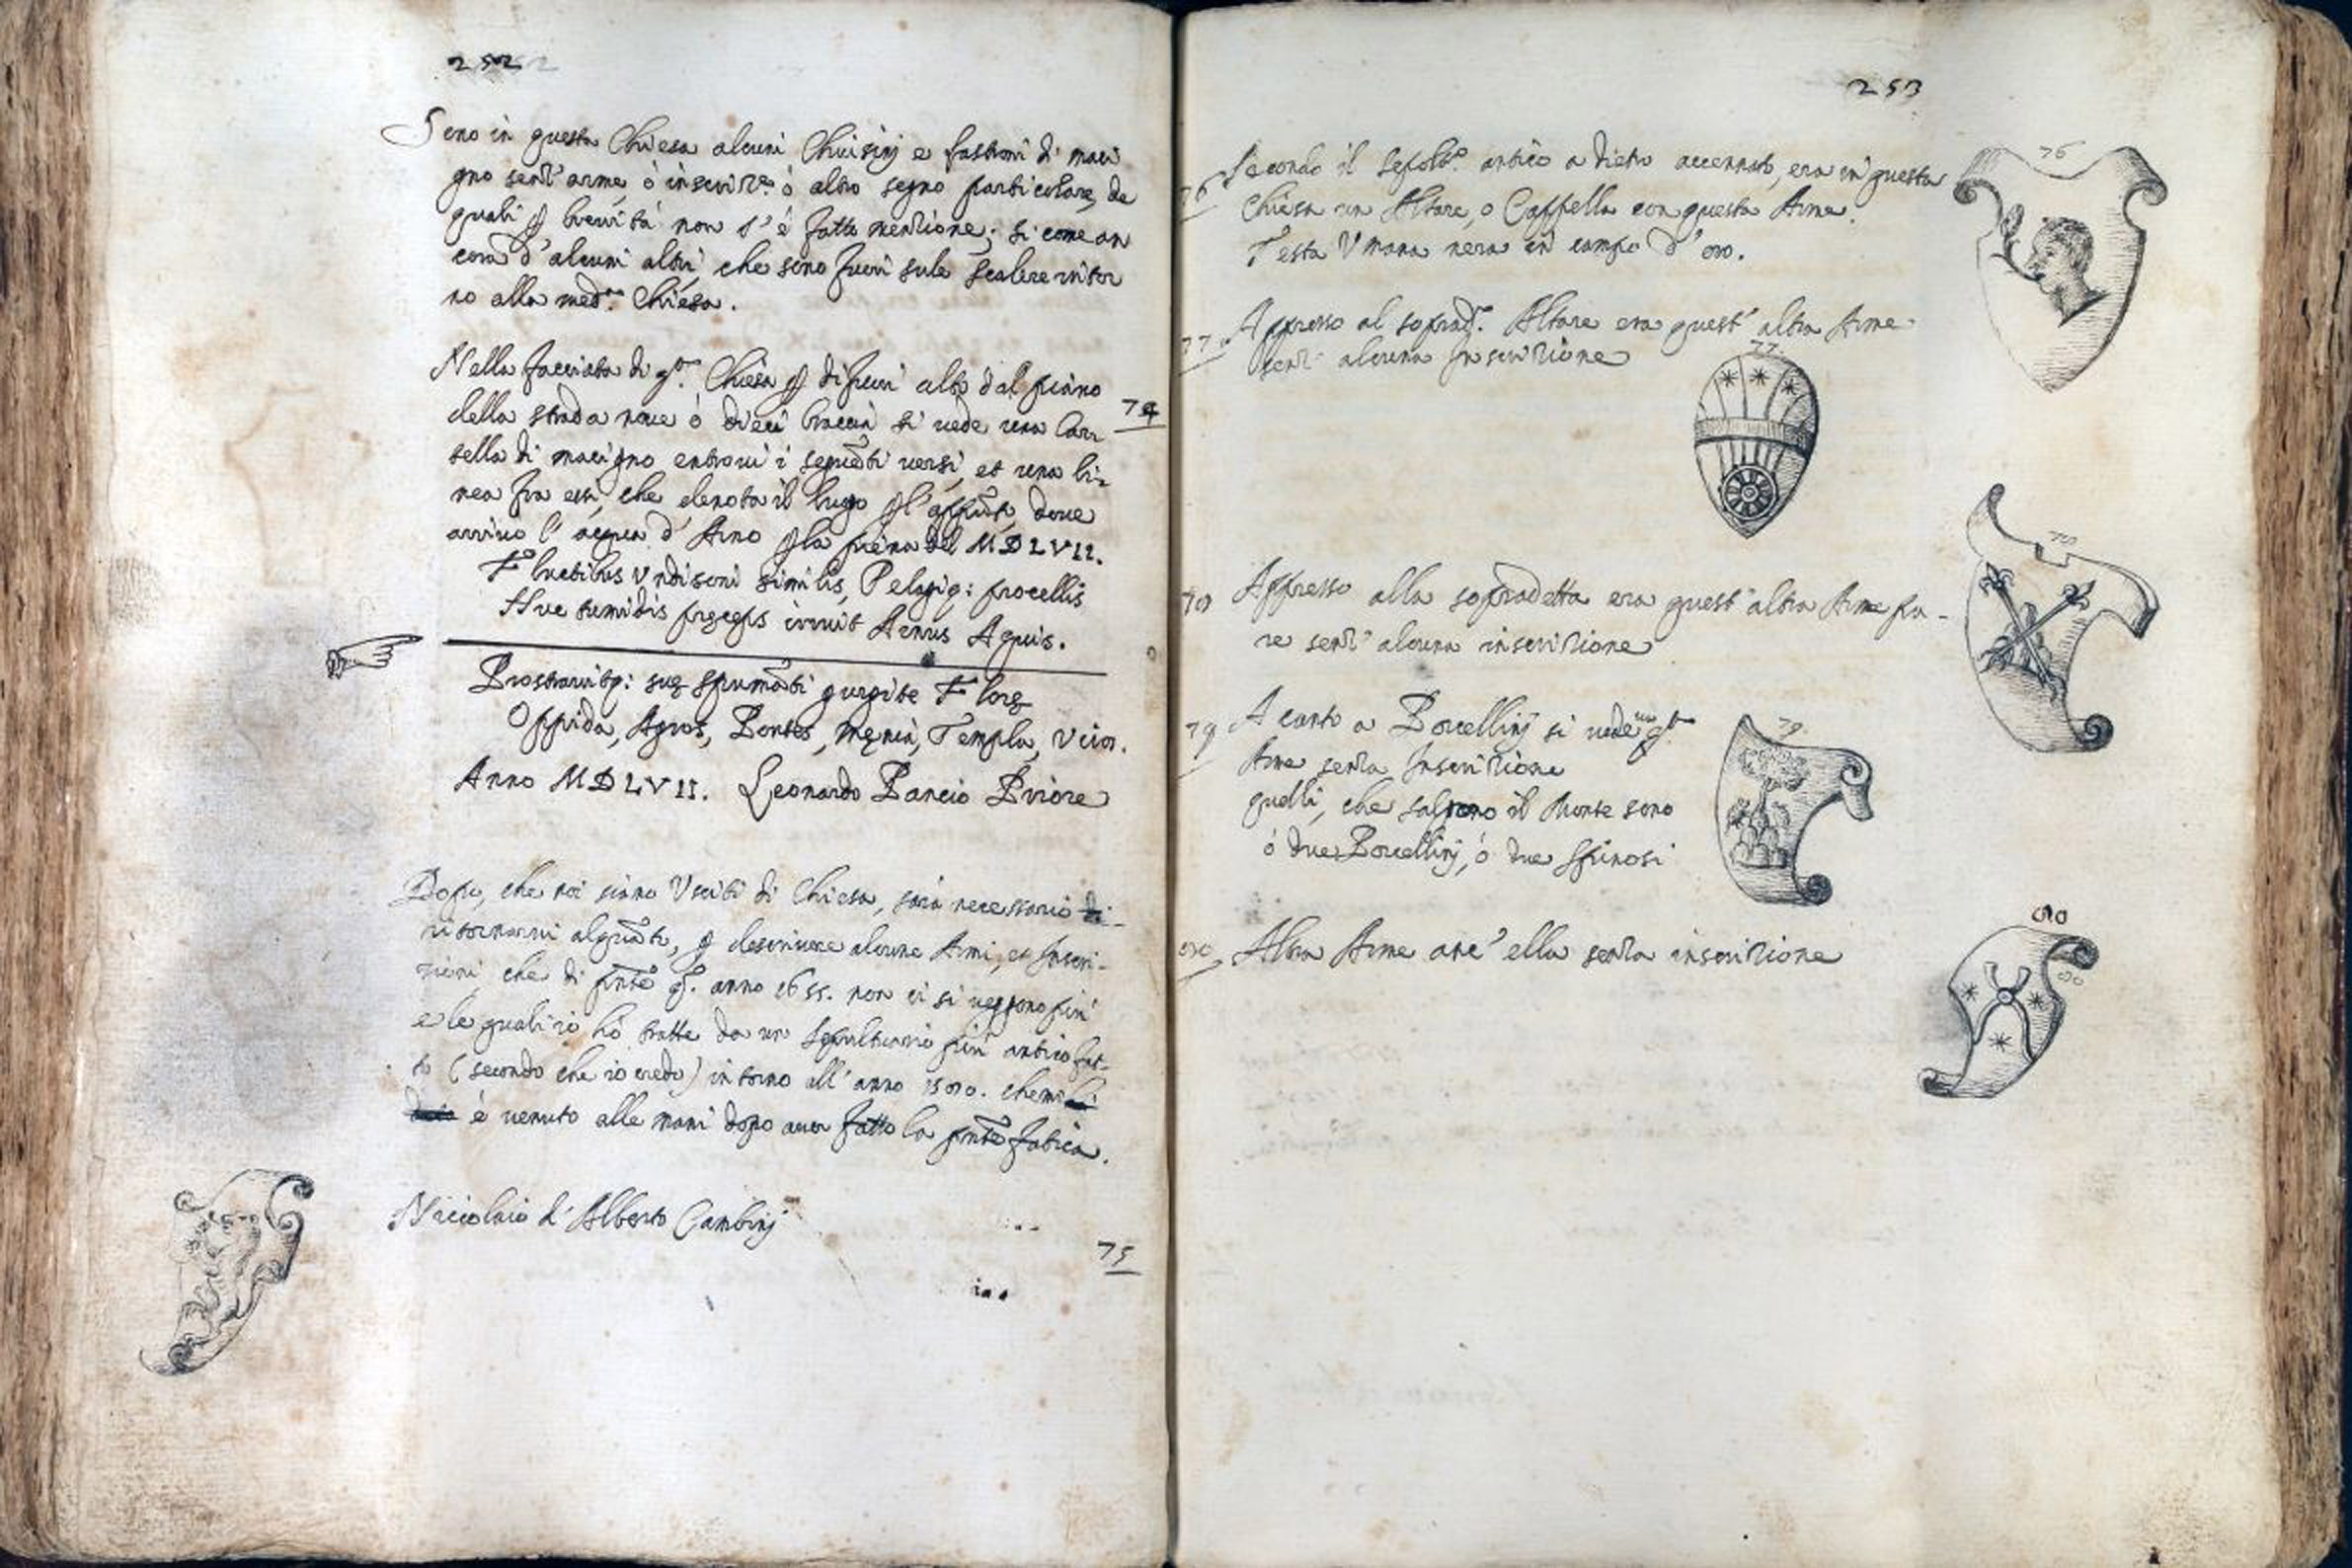 252
Sono in questa Chiesa alcuni Chiusinj e lastroni di maci
gno senz' arme, ò inscritz.e ò altro segno particolare, de
quali p brevità non s' è fatto menzione; si come an
cora d' alcuni altri, che sono fuori sule scalere intor
no alla med.ma Chiesa.
Nella facciata di q.ta Chiesa p di fuori alto dal piano
della strada nove ò dieci braccia si vede una Car
tella di macigno entrovi i seguēti versi, et una li-
nea fra essi, che denota il luogo p l' appūto, dove
arrivo l' acqua d' Arno p la piena del MDLVII.
74
Fluctibus Undisoni similis, Pelagiq: procellis
Huc tumidis pręceps irruit Arnus Aquis.
Prostravitq: suę spumāti gurgite Florę
Oppida, Agros, Pontes, męnia, Templa, Viros.
Anno MDLVII. Leonardo Pancio Priore
Dopo, che noi siamo Usciti di Chiesa, sarà necessario di
ritornarvi alquāto, p descrivere alcune Armi, et Inscri-
zioni, che di pnte q.o anno 1655. non ci si veggono più
e le quali io hò tratte da un Sepultuario più antico fat-
to (secondo che io credo) intorno all' anno 1580. che mi
è venuto alle mani dopo aver fatto la pnte fatica.
Niccolaio d' Alberto Cambinj
75
253
76 Secondo il Sepolt.o antico a dietro accennato, era in questa
Chiesa un Altare, o Cappella con questa Arme.
Testa Umana nera in campo d' oro.
76
77. Appresso al soprad.o Altare era quest' altra Arme
senz' alcuna Inscrizione
77.
78 Appresso alla sopradetta era quest' altra Arme pu-
re senz' alcuna inscrizione
78
79 A canto a Porcellinj si vede q.ta
Arme senza Inscrizione
quelli, che salgono il Monte sono
ò due Porcellinj, ò due Spinosi
79.
80 Altra Arme anc' ella senza inscrizione
80
80